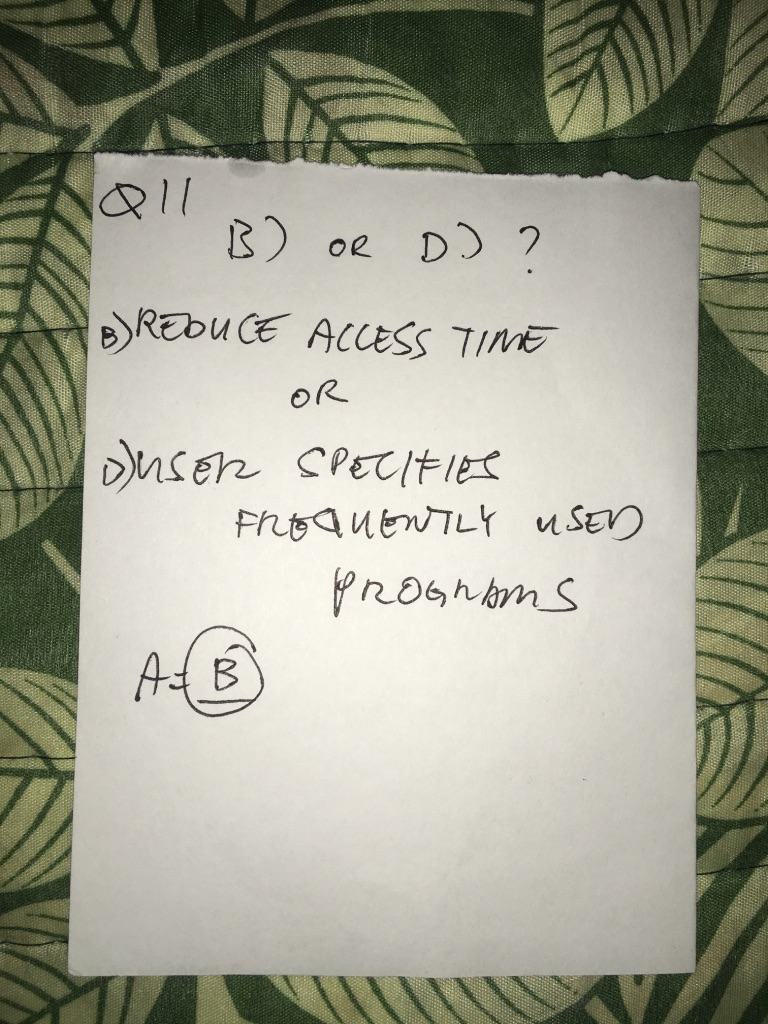 Q11
B) OR D) ?
B) REDUCE ACCESS TIME
OR
D) USER SPECIFIES
FREQUENTLY USED
PROGRAMS
A= B